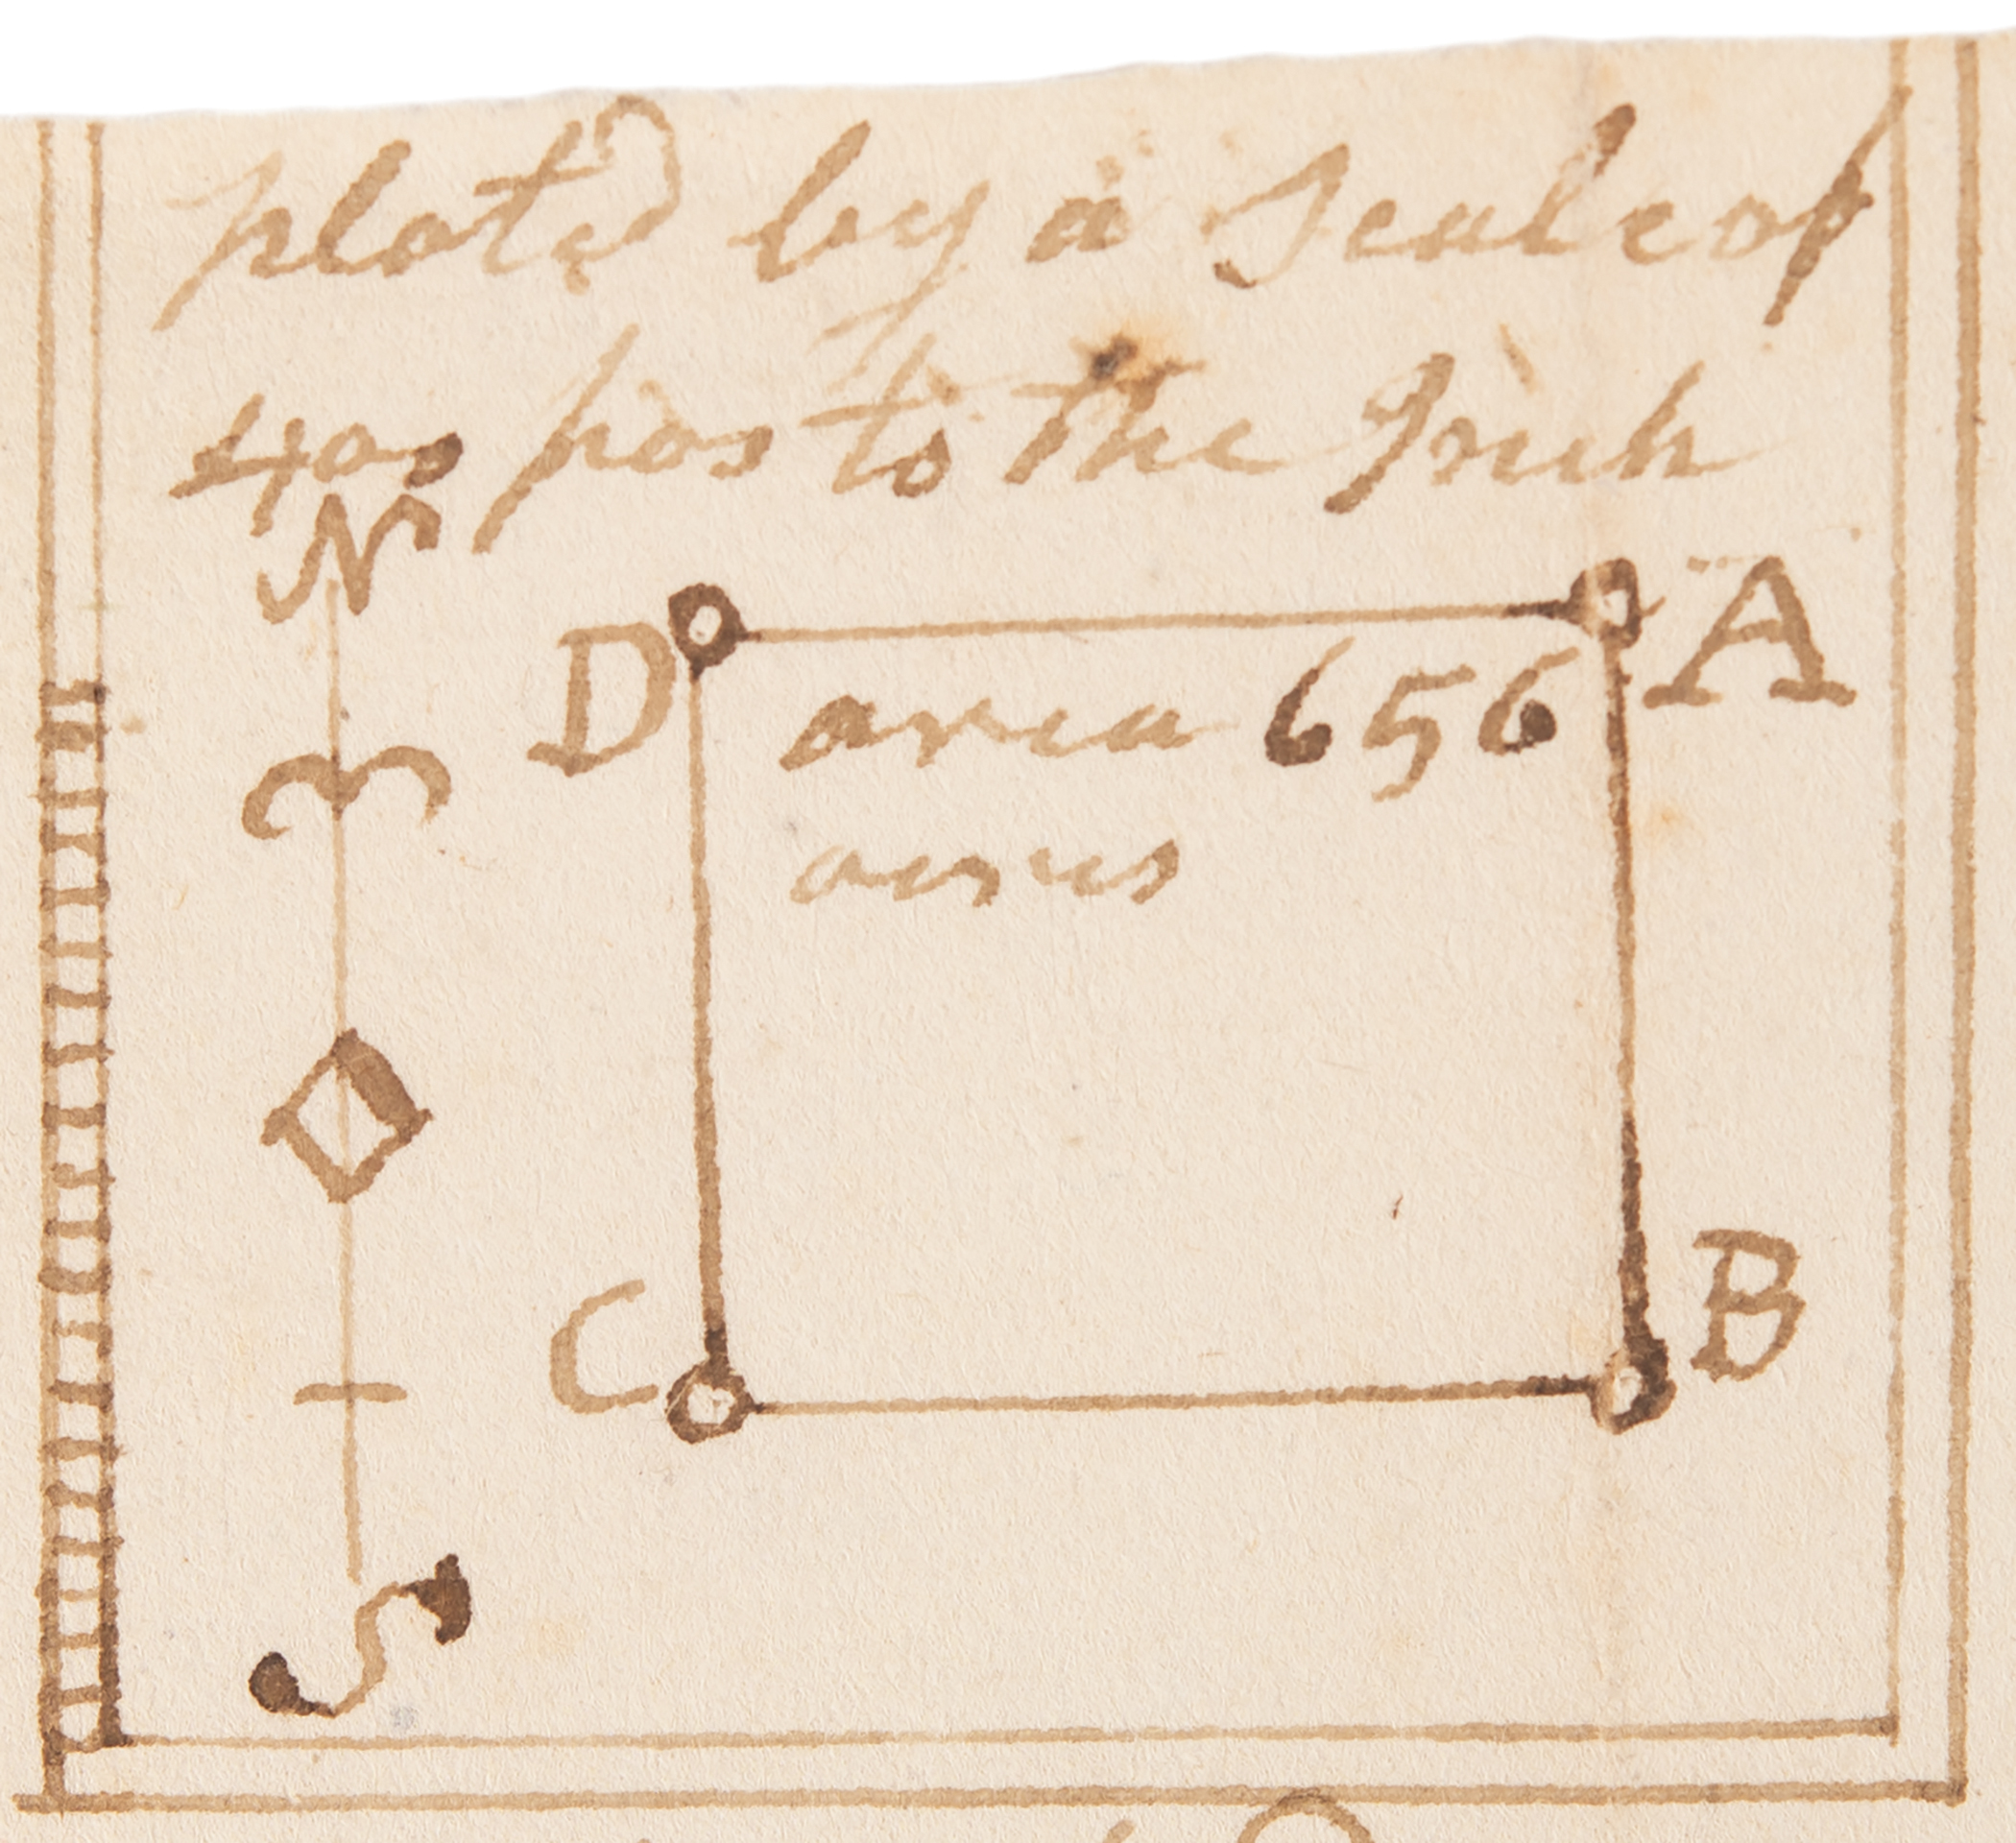 plotd by a Scale of
400 pos to the Inch
N
D
A
area 656
acres
C
B
S